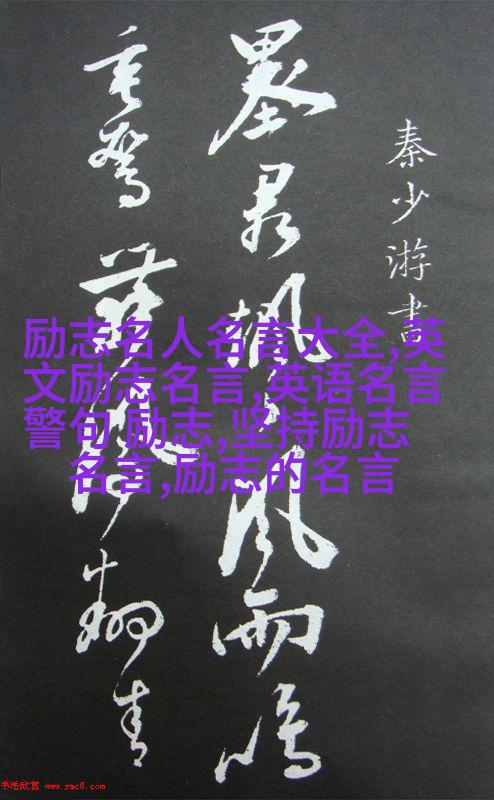 秦少游書
墨君颯風雨鳴
翻青
励志名人名言大全,英
文励志名言,英语名言
警句 励志,坚持励志
名言,励志的名言
书法欣赏 www.yac8.com